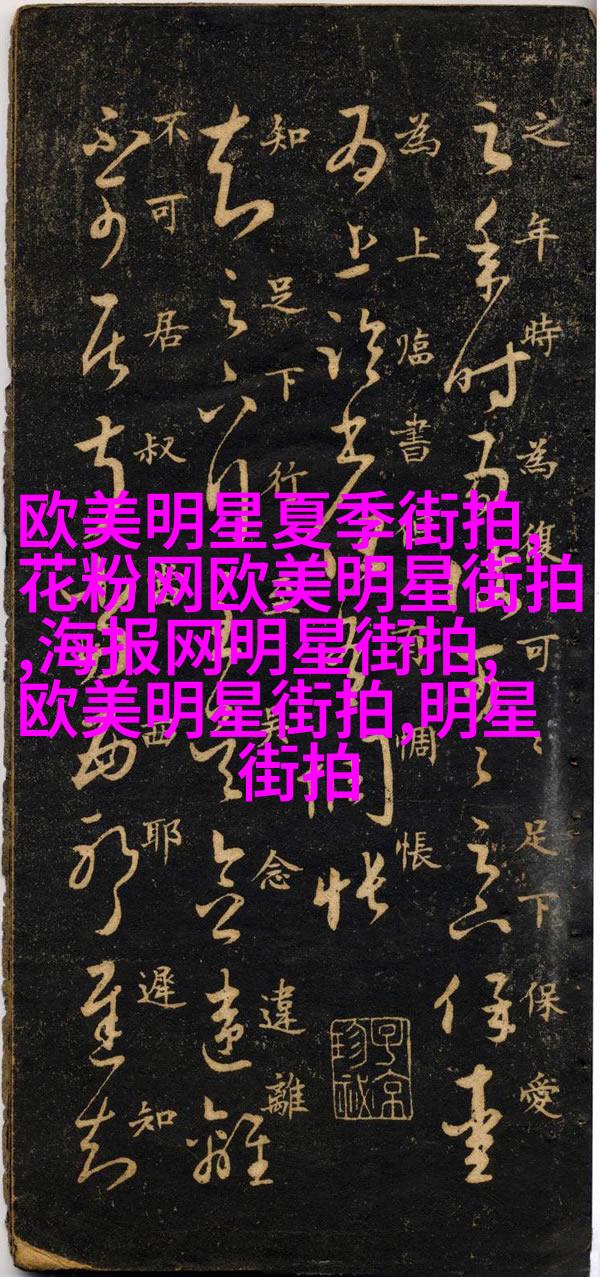 之年時為復可〻足下保愛
為上臨書但有惆悵
知足下行吳念違離
不可居叔西耶遲知
子京珍祕
欧美明星夏季街拍,
花粉网欧美明星街拍
,海报网明星街拍,
欧美明星街拍,明星
街拍